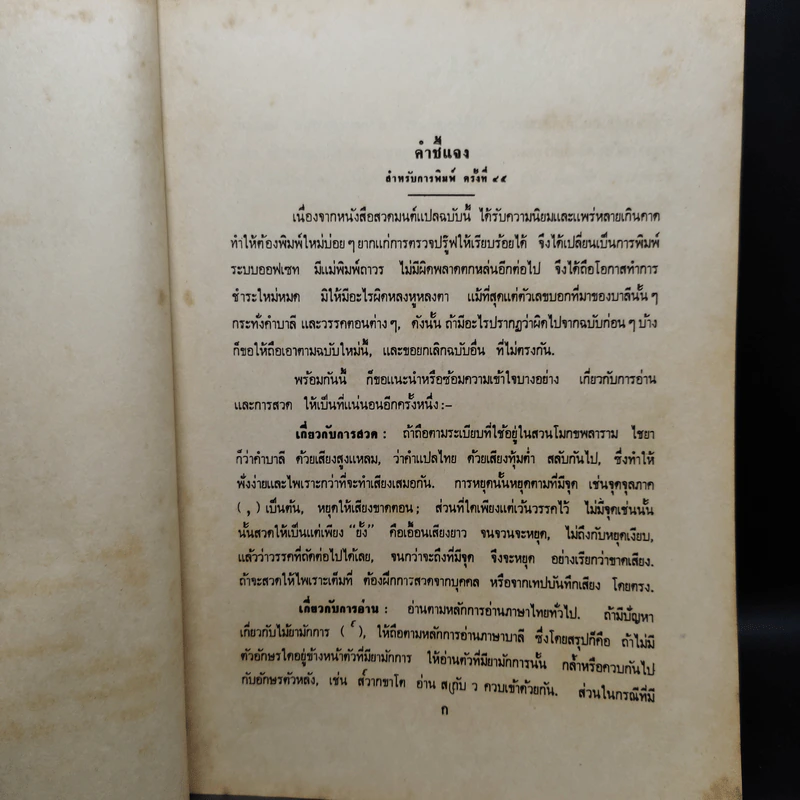 คำชี้แจง
สำหรับการพิมพ์ ครั้งที่ ๔๕
เนื่องจากหนังสือสวดมนต์แปลฉบับนี้ ได้รับความนิยมและแพร่หลายเกินคาด
ทำให้ต้องพิมพ์ใหม่บ่อย ๆ ยากแก่การตรวจปรู๊ฟให้เรียบร้อยได้ จึงได้เปลี่ยนเป็นการพิมพ์
ระบบออฟเซท มีแม่พิมพ์ถาวร ไม่มีผิดพลาดตกหล่นอีกต่อไป จึงได้ถือโอกาสทำการ
ชำระใหม่หมด มิให้มีอะไรผิดหลงหูหลงตา แม้ที่สุดแต่ตัวเลขบอกที่มาของบาลีนั้น ๆ
กระทั่งคำบาลี และวรรคตอนต่าง ๆ, ดังนั้น ถ้ามีอะไรปรากฏว่าผิดไปจากฉบับก่อน ๆ บ้าง
ก็ขอให้ถือเอาตามฉบับใหม่นี้, และขอยกเลิกฉบับอื่น ที่ไม่ตรงกัน.
พร้อมกันนี้ ก็ขอแนะนำหรือซ้อมความเข้าใจบางอย่าง เกี่ยวกับการอ่าน
และการสวด ให้เป็นที่แน่นอนอีกครั้งหนึ่ง :–
เกี่ยวกับการสวด : ถ้าถือตามระเบียบที่ใช้อยู่ในสวนโมกขพลาราม ไชยา
ก็ว่าคำบาลี ด้วยเสียงสูงแหลม, ว่าคำแปลไทย ด้วยเสียงทุ้มต่ำ สลับกันไป, ซึ่งทำให้
ฟังง่ายและไพเราะกว่าที่จะทำเสียงเสมอกัน. การหยุดนั้นหยุดตามที่มีจุด เช่นจุดจุลภาค
( , ) เป็นต้น, หยุดให้เสียงขาดตอน ; ส่วนที่ใดเพียงแต่เว้นวรรคไว้ ไม่มีจุดเช่นนั้น
นั้นสวดให้เป็นแต่เพียง "ยั้ง" คือเอื้อนเสียงยาว จนจวนจะหยุด, ไม่ถึงกับหยุดเงียบ,
แล้วว่าวรรคที่ถัดต่อไปได้เลย, จนกว่าจะถึงที่มีจุด จึงจะหยุด อย่างเรียกว่าขาดเสียง.
ถ้าจะสวดให้ไพเราะเต็มที่ ต้องฝึกการสวดจากบุคคล หรือจากเทปบันทึกเสียง โดยตรง.
เกี่ยวกับการอ่าน : อ่านตามหลักการอ่านภาษาไทยทั่วไป. ถ้ามีปัญหา
เกี่ยวกับไม้ยามักการ ( ๎ ), ให้ถือตามหลักการอ่านภาษาบาลี ซึ่งโดยสรุปก็คือ ถ้าไม่มี
ตัวอักษรใดอยู่ข้างหน้าตัวที่มียามักการ ให้อ่านตัวที่มียามักการนั้น กล้ำหรือควบกันไป
กับอักษรตัวหลัง, เช่น ส๎วากขาโต อ่าน ส กับ ว ควบเข้าด้วยกัน. ส่วนในกรณีที่มี
ก